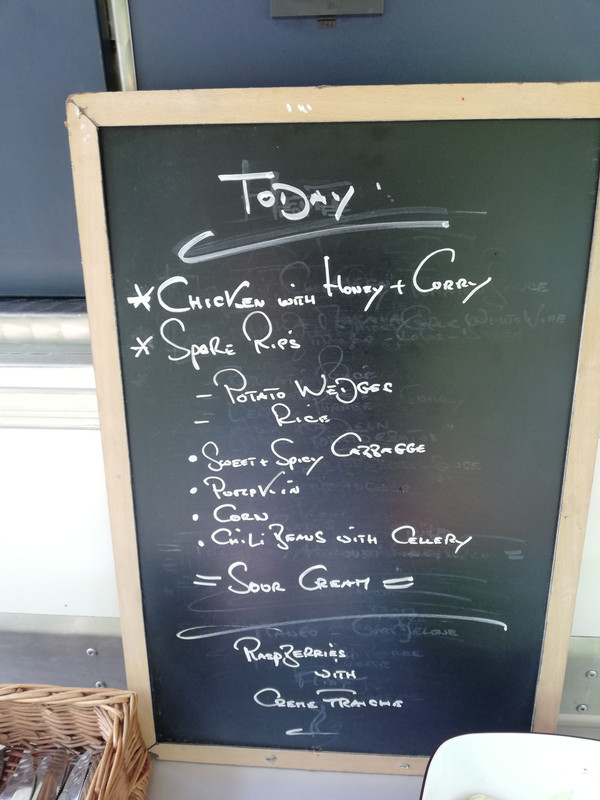 TODAY:
* CHICKEN WITH HONEY + CURRY
* SPARE RIPS
- POTATO WEDGES
- RICE
• SWEET + SPICY CABBAGGE
• PUMPKIN
• CORN
• CHILI BEANS WITH CELLERY
= SOUR CREAM =
RASPBERRIES
WITH
CREME FRAICHE